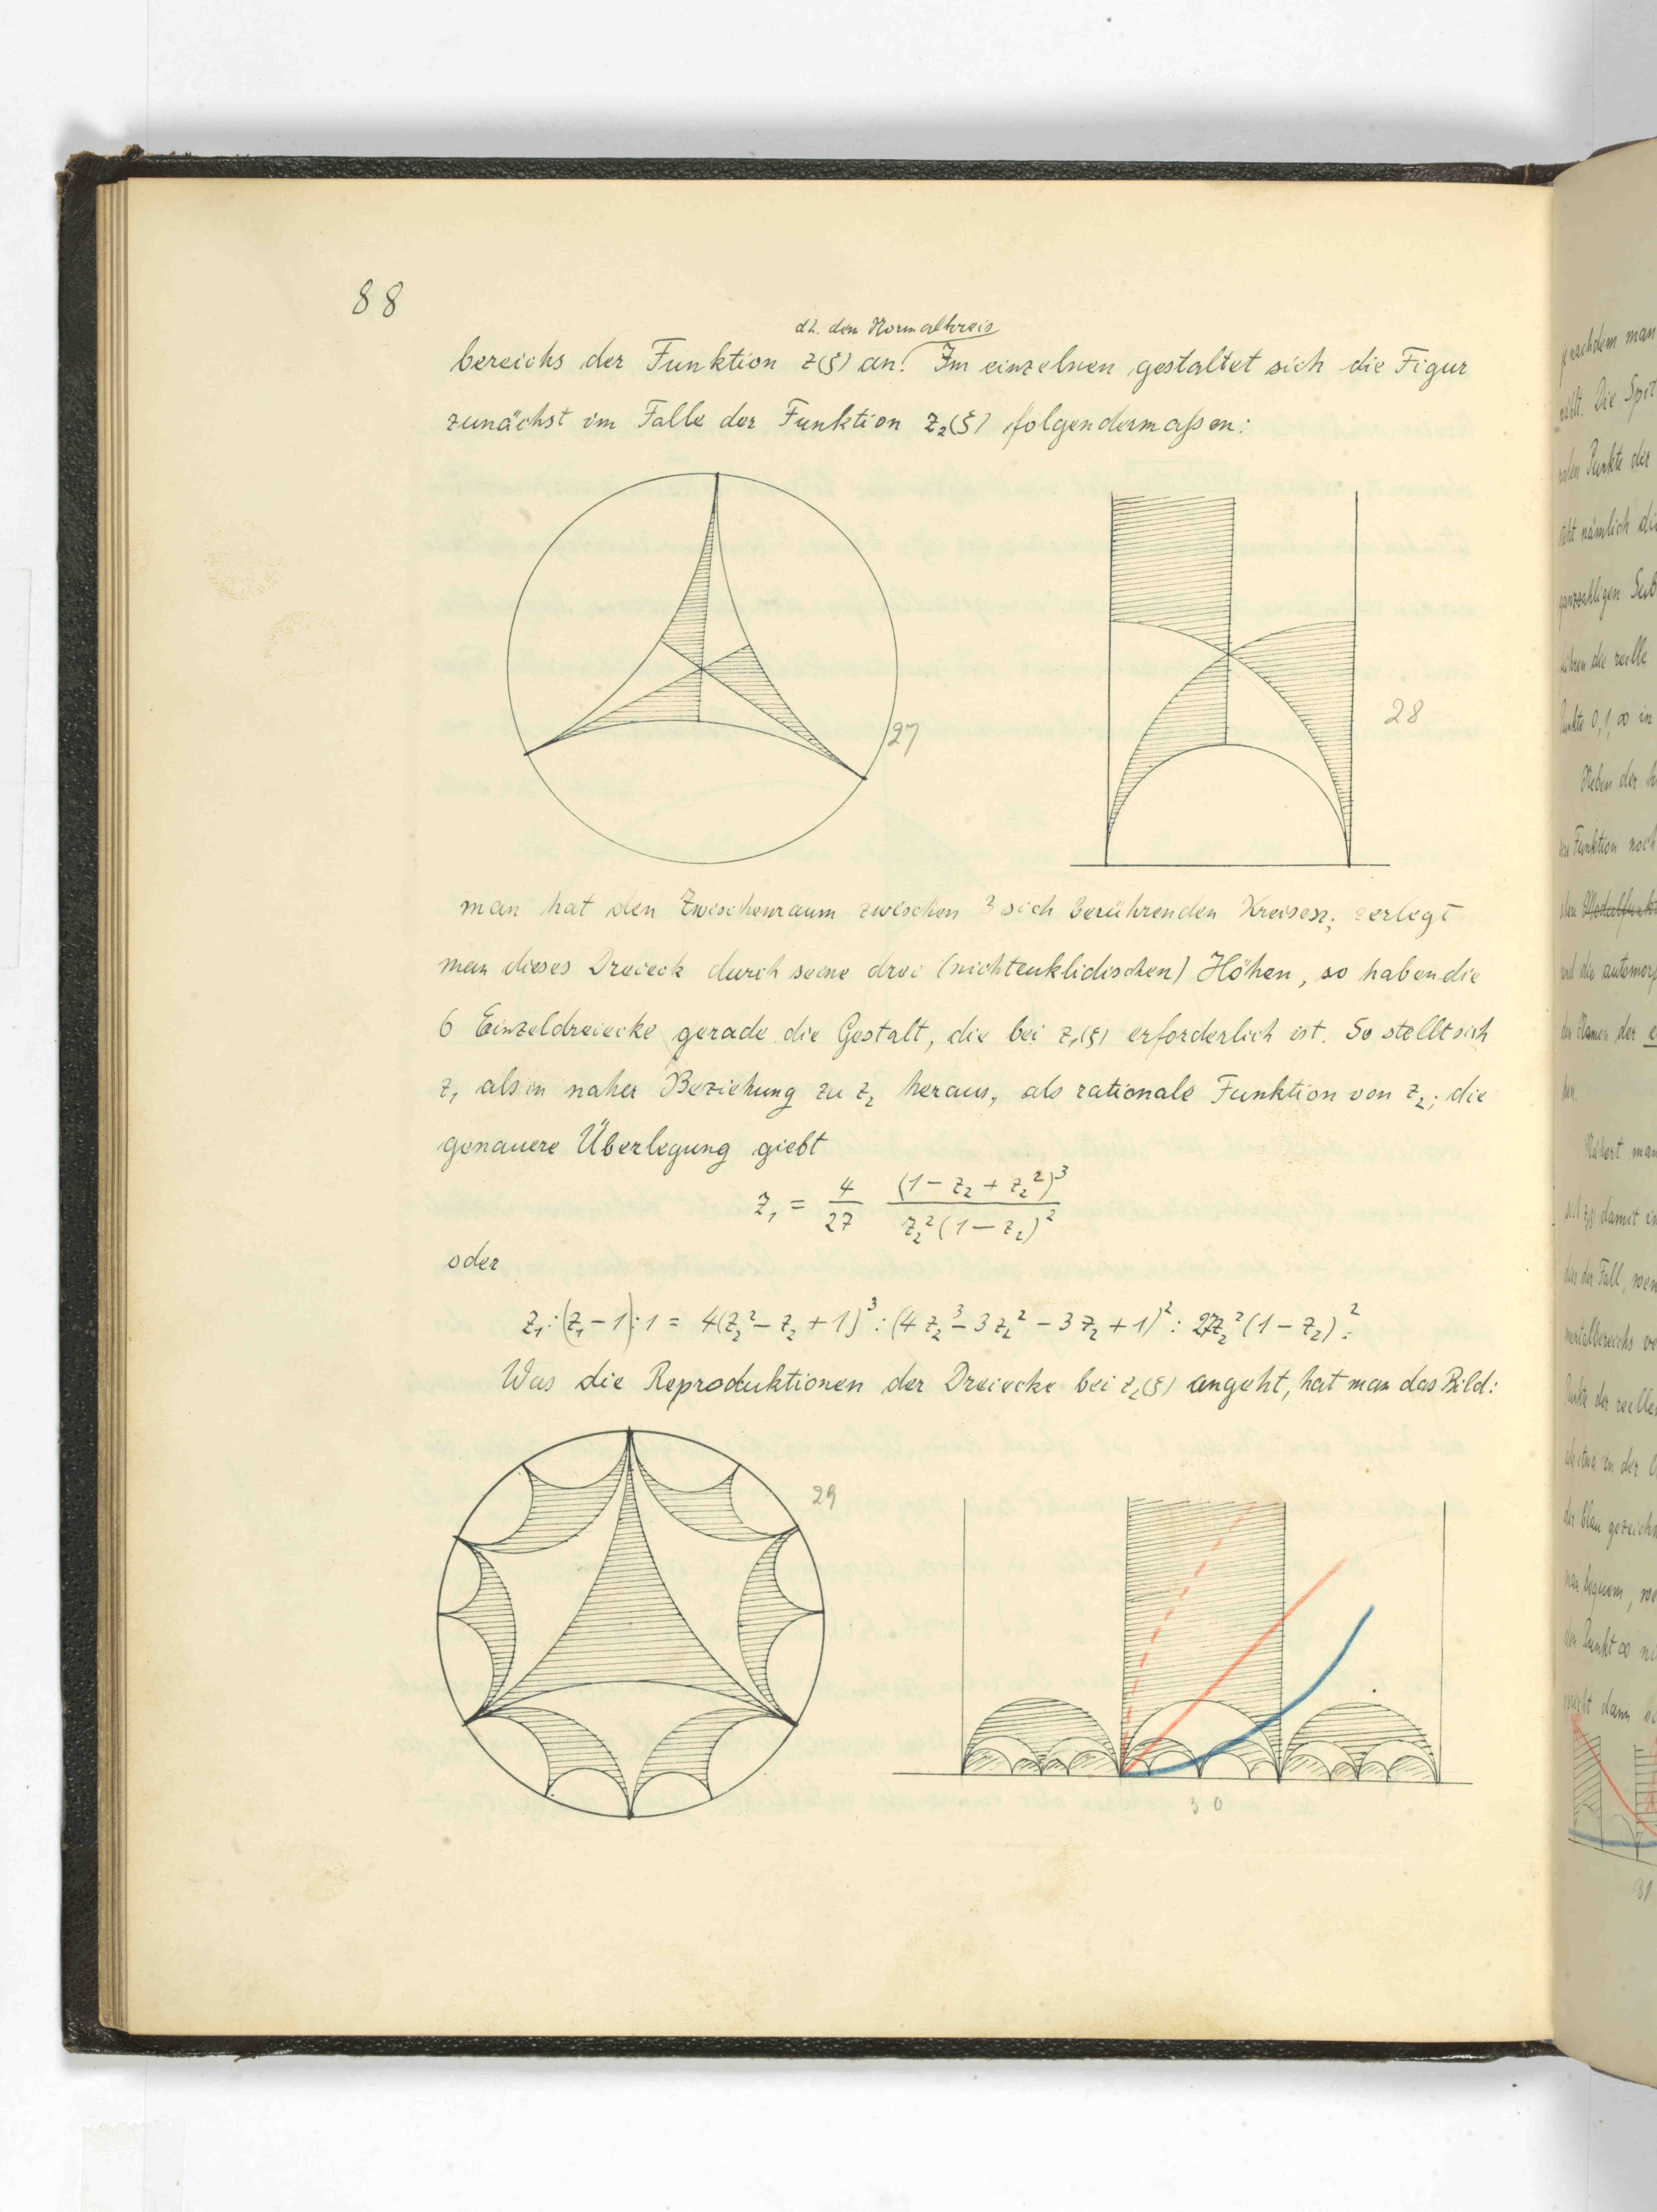 88
d.h. den Normalkreis
bereichs der Funktion z(ξ) an! Im einzelnen gestaltet sich die Figur
zunächst im Falle der Funktion z₂(ξ) folgendermaßen:
27
28
man hat den Zwischenraum zwischen 3 sich berührenden Kreisen; zerlegt
man dieses Dreieck durch seine drei (nichteuklidischen) Höhen, so haben die
6 Einzeldreiecke gerade die Gestalt, die bei z₁(ξ) erforderlich ist. So stellt sich
z₁ als in naher Beziehung zu z₂ heraus, als rationale Funktion von z₂; die
genauere Überlegung giebt
z₁ = 4/27 (1 − z₂ + z₂²)³ / z₂²(1 − z₂)²
oder
z₁ : (z₁ − 1) : 1 = 4(z₂² − z₂ + 1)³ : (4z₂³ − 3z₂² − 3z₂ + 1)² : 27z₂²(1 − z₂)².
Was die Reproduktionen der Dreiecke bei z₂(ξ) angeht, hat man das Bild:
29
30
je nachdem man
Die Spit
Punkte der
nämlich
ganzzahligen Sub
die reelle
Punkte 0, 1, ∞ in
Neben der
Funktion noch
Modulfunk
die automorp
Namen der
Nähert man
damit in
der Fall, wenn
Punkte der reellen
in der
blau gezeichn
bequem,
Punkt ∞
dann
31